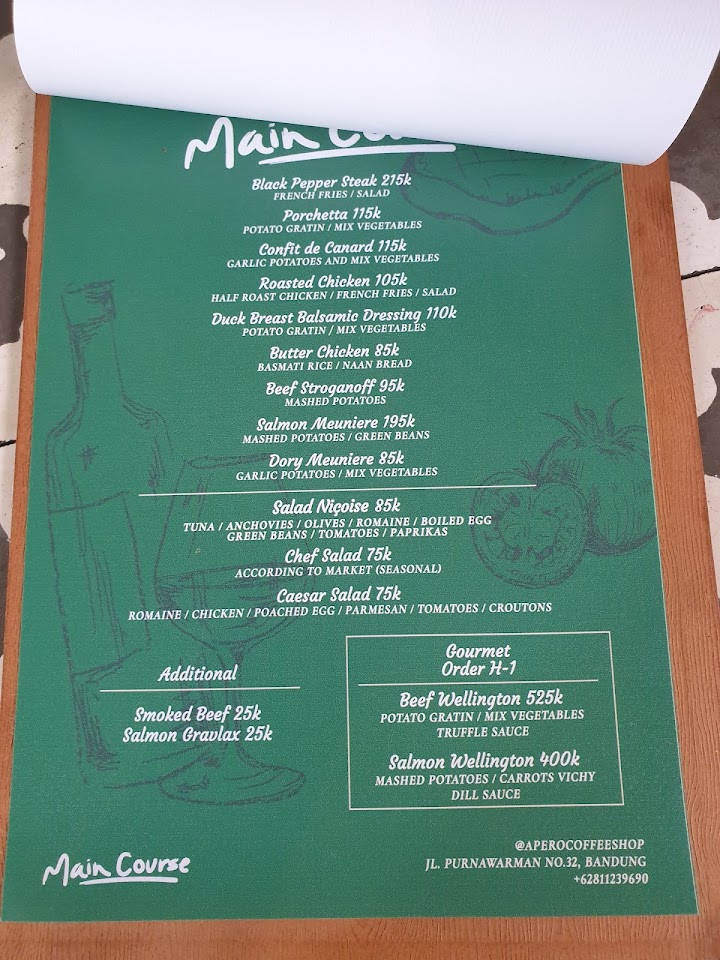 Main
Black Pepper Steak 215k
FRENCH FRIES / SALAD
Porchetta 115k
POTATO GRATIN / MIX VEGETABLES
Confit de Canard 115k
GARLIC POTATOES AND MIX VEGETABLES
Roasted Chicken 105k
HALF ROAST CHICKEN / FRENCH FRIES / SALAD
Duck Breast Balsamic Dressing 110k
POTATO GRATIN / MIX VEGETABLES
Butter Chicken 85k
BASMATI RICE / NAAN BREAD
Beef Stroganoff 95k
MASHED POTATOES
Salmon Meuniere 195k
MASHED POTATOES / GREEN BEANS
Dory Meuniere 85k
GARLIC POTATOES / MIX VEGETABLES
Salad Niçoise 85k
TUNA / ANCHOVIES / OLIVES / ROMAINE / BOILED EGG
GREEN BEANS / TOMATOES / PAPRIKAS
Chef Salad 75k
ACCORDING TO MARKET (SEASONAL)
Caesar Salad 75k
ROMAINE / CHICKEN / POACHED EGG / PARMESAN / TOMATOES / CROUTONS
Additional
Smoked Beef 25k
Salmon Gravlax 25k
Gourmet
Order H-1
Beef Wellington 525k
POTATO GRATIN / MIX VEGETABLES
TRUFFLE SAUCE
Salmon Wellington 400k
MASHED POTATOES / CARROTS VICHY
DILL SAUCE
Main Course
@APEROCOFFEESHOP
JL. PURNAWARMAN NO.32, BANDUNG
+62811239690